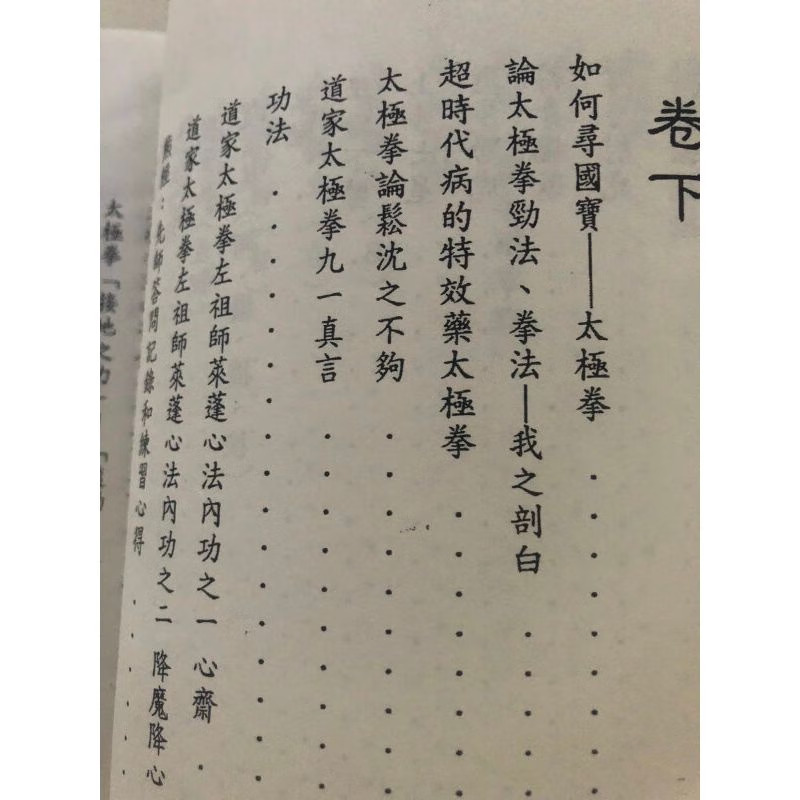 卷下
如何尋國寶——太極拳
論太極拳勁法、拳法—我之剖白
超時代病的特效藥太極拳
太極拳論鬆沈之不夠
道家太極拳九一真言
功法
道家太極拳左祖師萊蓬心法內功之一 心齋
道家太極拳左祖師萊蓬心法內功之二 降魔降心
：先師答問記錄和練習心得
太極拳「接地之力